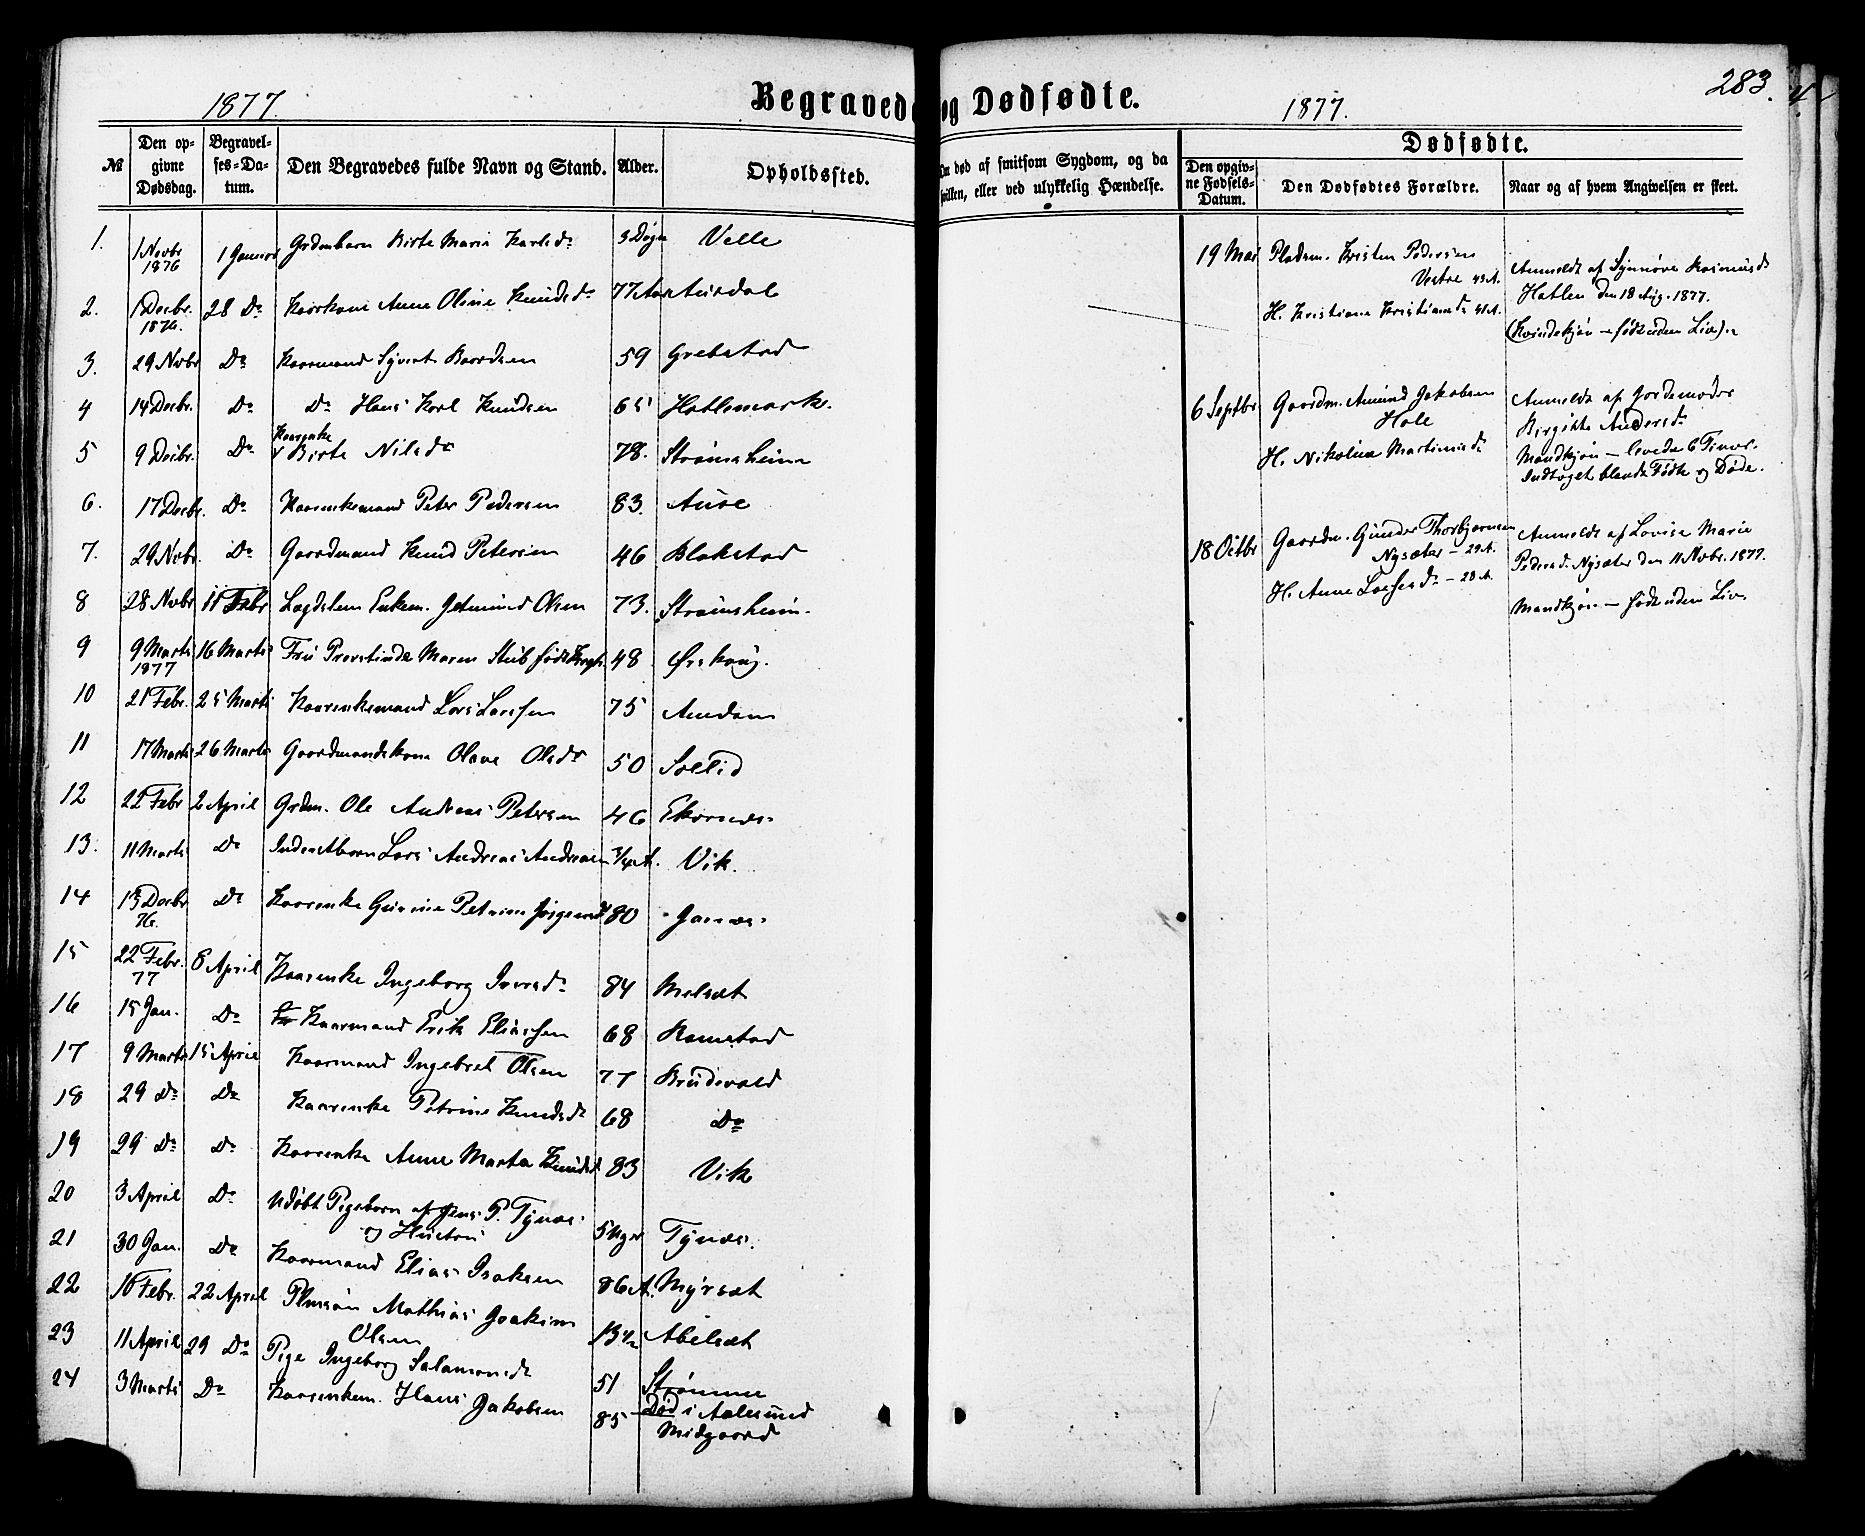 1877.
Begravede og Dødfødte.
1877.
283.
№
Den opgivne Dødsdag.
Begravelses-Datum.
Den Begravedes fulde Navn og Stand.
Alder.
Opholdssted.
død af smitsom Sygdom, og da
eller ved ulykkelig Hændelse.
Dødfødte.
Den opgivne Fødsels-Datum.
Den Dødfødtes Forældre.
Naar og af hvem Angivelsen er skeet.
1. 1 Novbr 1876 1 Januar Grdmbarn Birte Marie Karlsdr 3 Døgn Velle
2. 1 Decbr. 1876. 28 Do Kaarkone Anne Oline Knudsdr 77 Aar Aursdal
3. 29 Novbr Do Kaarmand Syvert Baardsen 59 Grebstad
4 14 Decbr. Do Do Hans Karl Knudsen 65 Hatlemark.
5 9 Decbr. Do Kaarenke Birte Nilsdr 78. Strømsheim
6. 17 Decbr. Do Kaarenkemand Peter Pedersen 83. Aure
7. 29 Novbr. Do Gaardmand Knud Petersen 46 Blakstad
8 28 Novbr 11 Febr Lægdslem Enkem. Jetmund Olsen 73. Strømsheim.
9 9 Marts 1877 16 Marts Fru Provstinde Maren Stub født Krogh 48 Ørskoug.
10 21 Febr. 25 Marts Kaarenkemand Lars Larssen 75 Amdam
11 17 Marts 26 Marts Gaardmandskone Olave Olsdr 50 Sollid
12 22 Febr 2 April Grdm. Ole Andreas Petersen 46 Ekornes.
13. 11 Marts Do Lars Andreas Andreasen 3/4 A. Vik.
14 13 Decbr 76. Do Kaarenke Gurine Petrine Jørgensdr 80 Janes.
15 22 Febr. 77 8 April Kaarenke Ingeborg Iversdr 84 Melsæt
16 15 Jan. Do Kaarmand Erik Eliassen 68 Ramstad
17 9 Marts 15 April Kaarmand Ingebret Olsen 77 Brudevold
18 29 Do Do Kaarenke Petrine Knudsdr 68 Do
19 29 Do Do Kaarenke Anne Marta Knudsd 83 Vik
20 3 April Do Udøbt Pigebarn af Jens P. Tynæs og Hustru 5 Uger Tynæs.
21 30 Jan. Do Kaarmand Elias Isaksen 86 A. Myrsæt
22 18 Febr. 22 April Plmsøn Mathias Joakim Olsen 13 1/2 Abelsæt
23 11 April 29 Do Pige Ingeborg Salamonsdr 51 Strømme
Død i Aalesund
24 3 Marts Do Kaarenkem. Hans Jakobsen 85 Midgaard
19 Mai Pladsm. Kristen Pedersen
Vestre 43 A.
H. Kristiane Kristiansdr 41 A.
Anmeldt af Synnøve Rasmusdr
Hatlen den 18 Aug. 1877.
(Kvindekjøn – født uden Liv).
6 Septbr Gaardm. Amund Jakobsen
Hole
H. Nikoline Martinusdr
Anmeldt af Jordemoder
Birgitte Andersdr
Mandkjøn – levede 6 Timer.
Indtaget blandt Fødte og Døde.
18 Octbr Gaardm. Gunder Thorbjørnsen
Nysæter – 29 A.
H. Anne Larsesdr – 28 A.
Anmeldt af Lovise Marie
Pedersd. Nysæter den 11 Novbr. 1877.
Mandkjøn – født uden Liv.